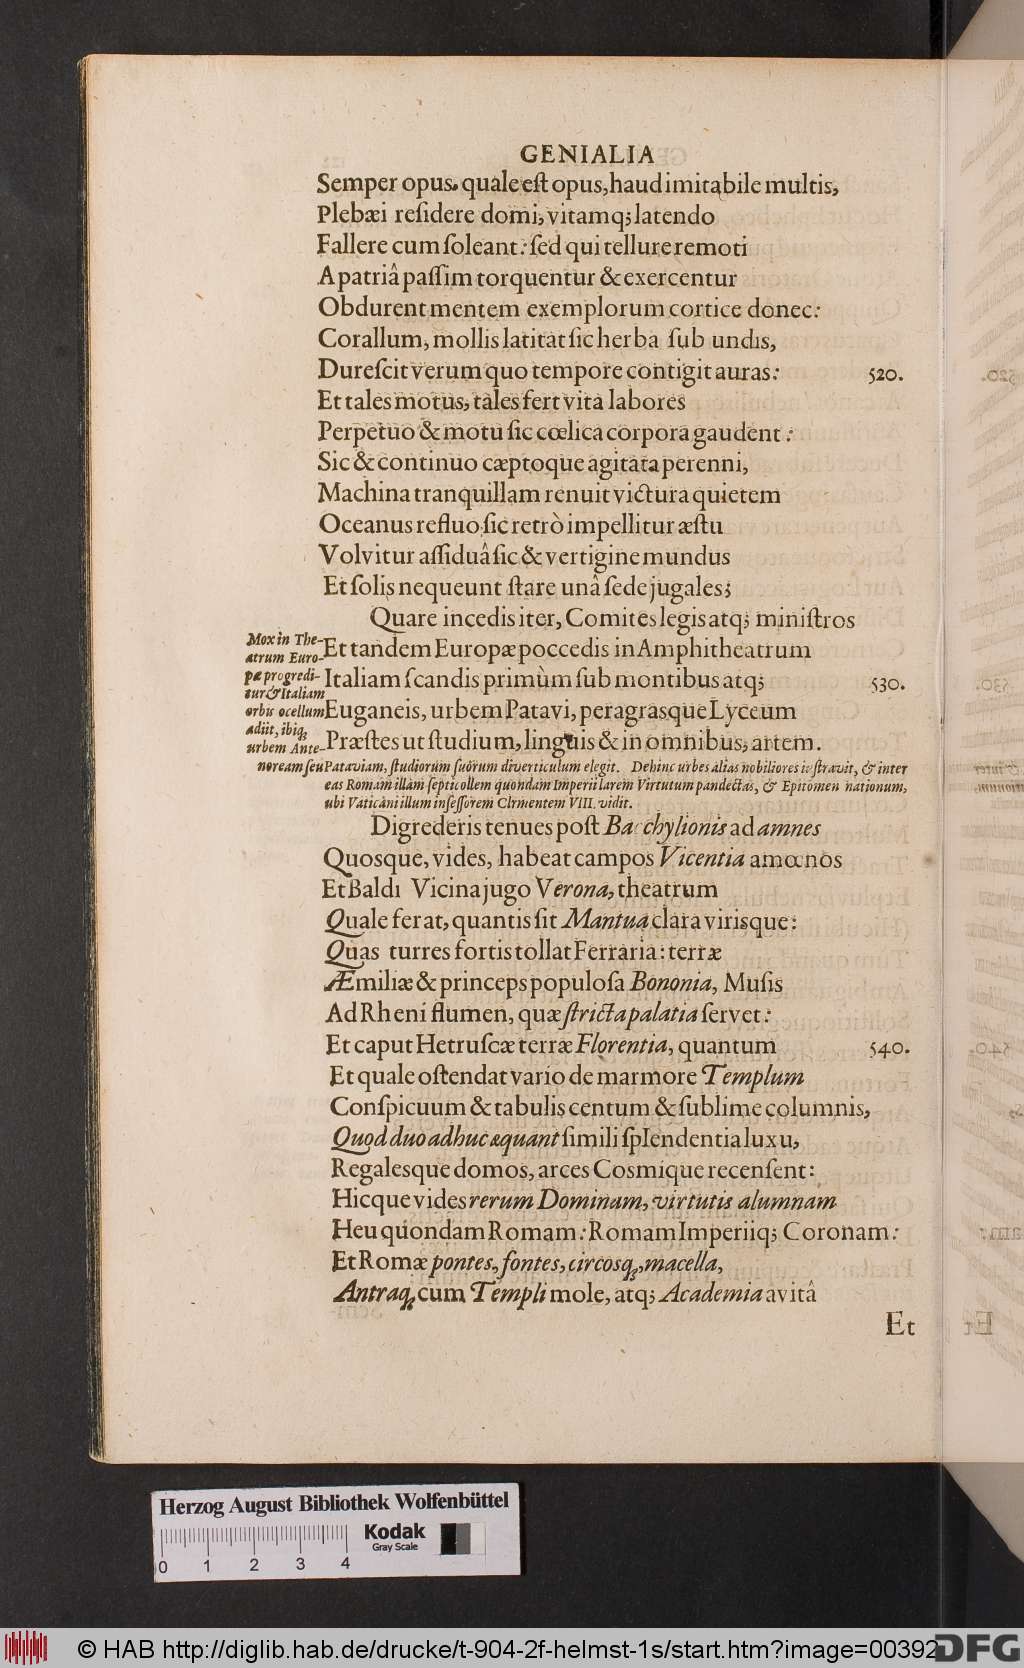 GENIALIA
Semper opus. quale eſt opus, haud imitabile multis,
Plebæi reſidere domi, vitamq; latendo
Fallere cum ſoleant: ſed qui tellure remoti
A patriâ paſſim torquentur & exercentur
Obdurent mentem exemplorum cortice donec:
Corallum, mollis latitat ſic herba ſub undis,
Dureſcit verum quo tempore contigit auras: 520.
Et tales motus, tales fert vita labores
Perpetuo & motu ſic cœlica corpora gaudent:
Sic & continuo cæptoque agitata perenni,
Machina tranquillam renuit victura quietem
Oceanus refluo ſic retrò impellitur æſtu
Volvitur aſſiduâ ſic & vertigine mundus
Et ſolis nequeunt ſtare unâ ſede jugales;
Quare incedis iter, Comites legis atq; miniſtros
Et tandem Europæ poccedis in Amphitheatrum
Italiam ſcandis primùm ſub montibus atq; 530.
Euganeis, urbem Patavi, peragrasque Lyceum
Præſtes ut ſtudium, linguis & in omnibus, artem.
Mox in The-
atrum Euro-
pæ progredi-
tur & Italiam
orbis ocellum
adiit, ibiq;
urbem Ante-
noream ſeu Pataviam, ſtudiorum ſuorum diverticulum elegit. Dehinc urbes alias nobiliores luſtravit, & inter
eas Romam illam ſepticollem quondam Imperii larem Virtutum pandectas, & Epitomen nationum,
ubi Vaticani illum inſeſſorem Clrmentem VIII. vidit.
Digrederis tenues poſt Bacchylionis ad amnes
Quosque, vides, habeat campos Vicentia amœnos
Et Baldi Vicina jugo Verona, theatrum
Quale ferat, quantis ſit Mantua clara virisque:
Quas turres fortis tollat Ferraria: terræ
Æmiliæ & princeps populoſa Bononia, Muſis
Ad Rheni flumen, quæ ſtricta palatia ſervet:
Et caput Hetruſcæ terræ Florentia, quantum 540.
Et quale oſtendat vario de marmore Templum
Conſpicuum & tabulis centum & ſublime columnis,
Quod duo adhuc æquant ſimili ſpIendentia luxu,
Regalesque domos, arces Cosmique recenſent:
Hicque vides rerum Dominam, virtutis alumnam
Heu quondam Romam: Romam Imperiiq; Coronam:
Et Romæ pontes, fontes, circosq;, macella,
Antraq; cum Templi mole, atq; Academia avitâ
Et
Herzog August Bibliothek Wolfenbüttel
Kodak
Gray Scale
0 1 2 3 4
© HAB http://diglib.hab.de/drucke/t-904-2f-helmst-1s/start.htm?image=00392
DFG